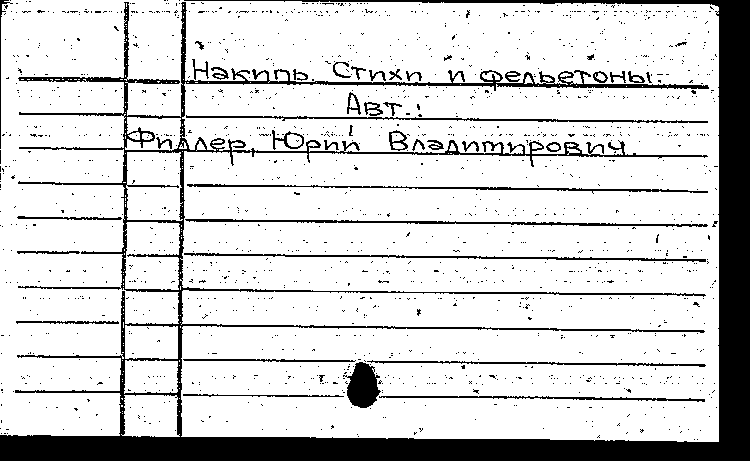 Накипь. Стихи и фельетоны.
Авт.:
Филлер, Юрий Владимирович.